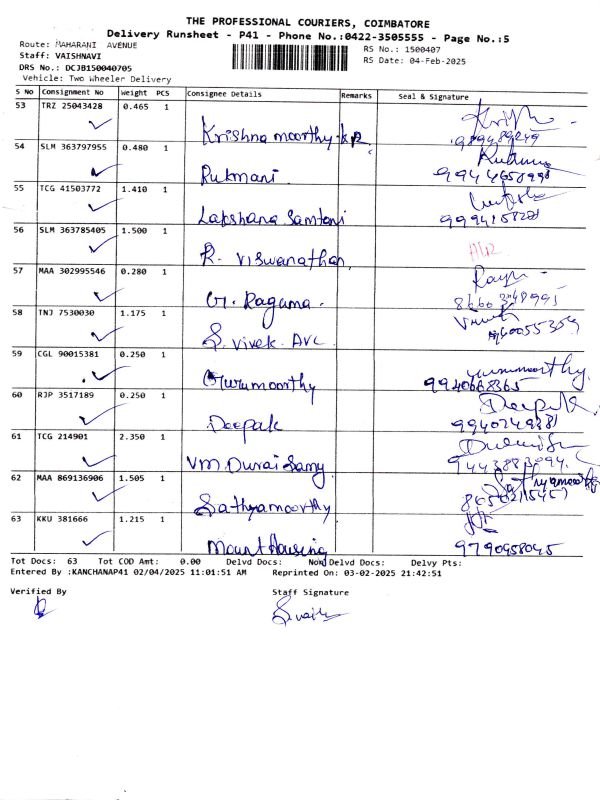 THE PROFESSIONAL COURIERS, COIMBATORE
Delivery Runsheet - P41 - Phone No.:0422-3505555 - Page No.:5
Route: MAHARANI AVENUE
RS No.: 1500407
Staff: VAISHNAVI
RS Date: 04-Feb-2025
DRS No.: DCJB150040705
Vehicle: Two Wheeler Delivery
S No Consignment No Weight PCS Consignee Details Remarks Seal & Signature
53 TRZ 25043428 0.465 1
Krishna moorthy.k.R.
54 SLM 363797955 0.480 1
Rukmani.
55 TCG 41503772 1.410 1
Lakshana Samtani
56 SLM 363785405 1.500 1
R. Viswanathan.
57 MAA 302995546 0.280 1
G. Raguma.
58 TNJ 7530030 1.175 1
S. Vivek. AVC
59 CGL 90015381 0.250 1
Gurumoorthy 9940668365
60 RJP 3517189 0.250 1
Deepak
61 TCG 214901 2.350 1
VM Durai Samy
62 MAA 869136906 1.505 1
Sathyamoorthy
63 KKU 381666 1.215 1
Mount Housing 9790958045
Tot Docs: 63 Tot COD Amt: 0.00 Delvd Docs: Non Delvd Docs: Delvy Pts:
Entered By :KANCHANAP41 02/04/2025 11:01:51 AM Reprinted On: 03-02-2025 21:42:51
Verified By Staff Signature